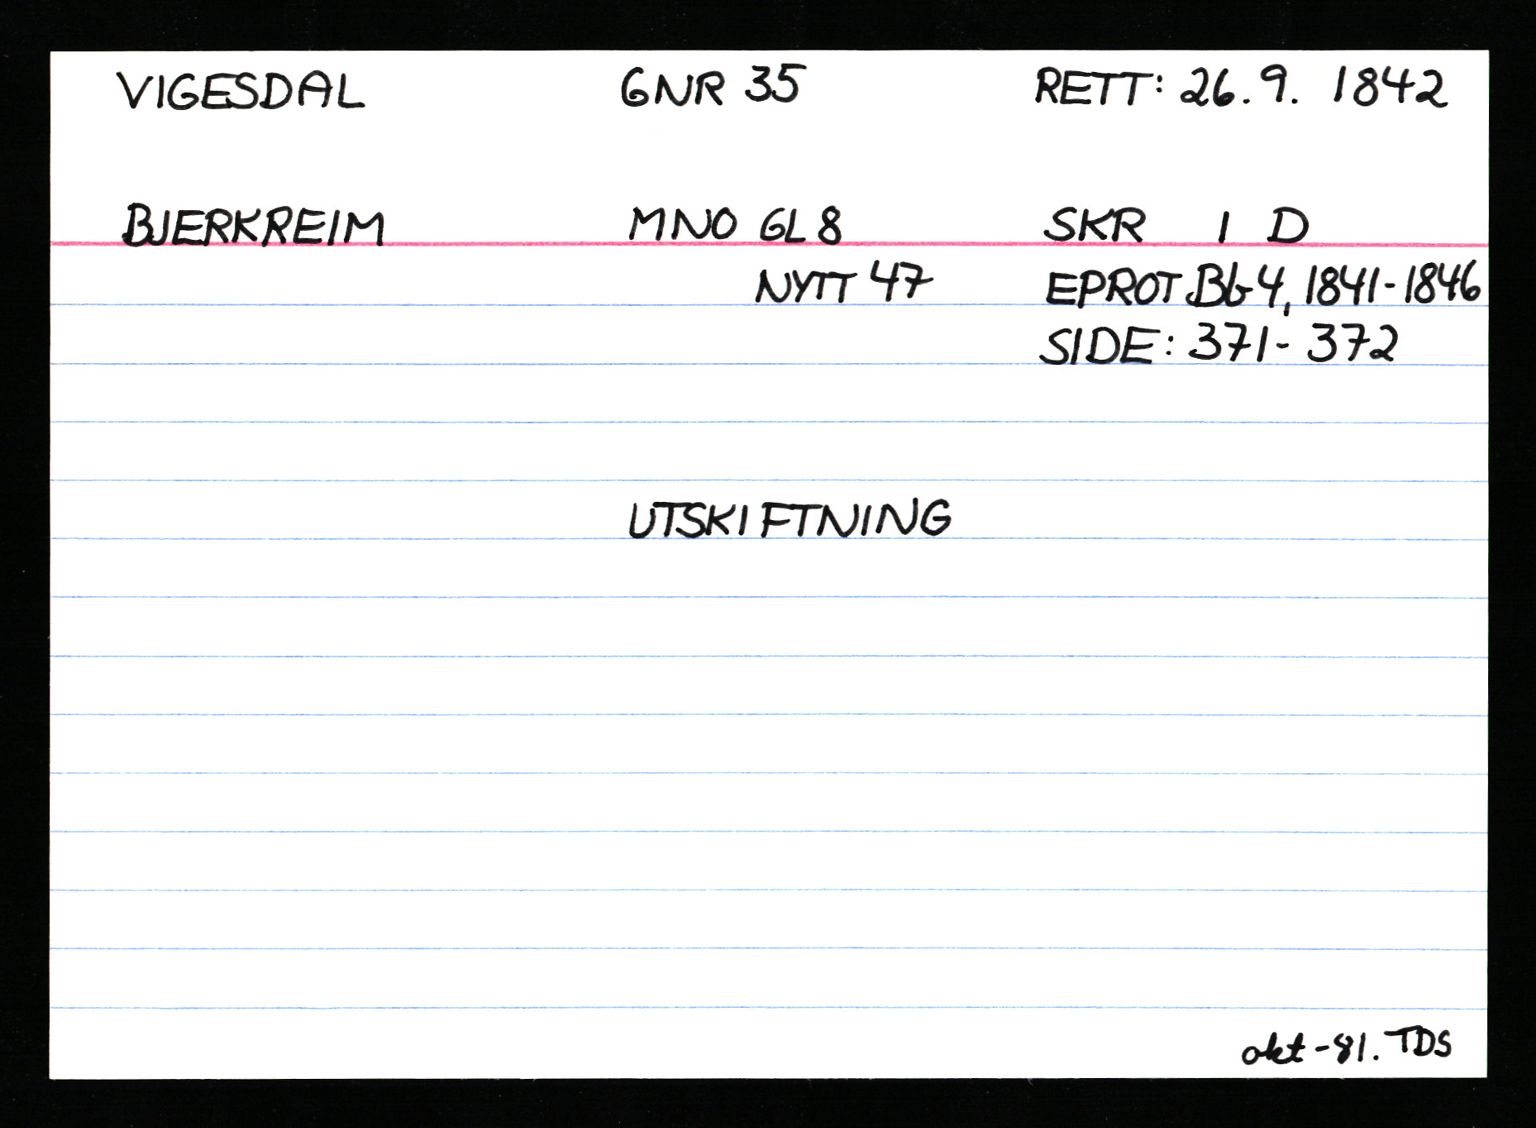 VIGESDAL GNR 35 RETT: 26.9. 1842
BJERKREIM MNO GL 8 SKR I D
NYTT 47 EPROT Bb 4, 1841-1846
SIDE: 371-372
UTSKIFTNING
okt-81. TDS